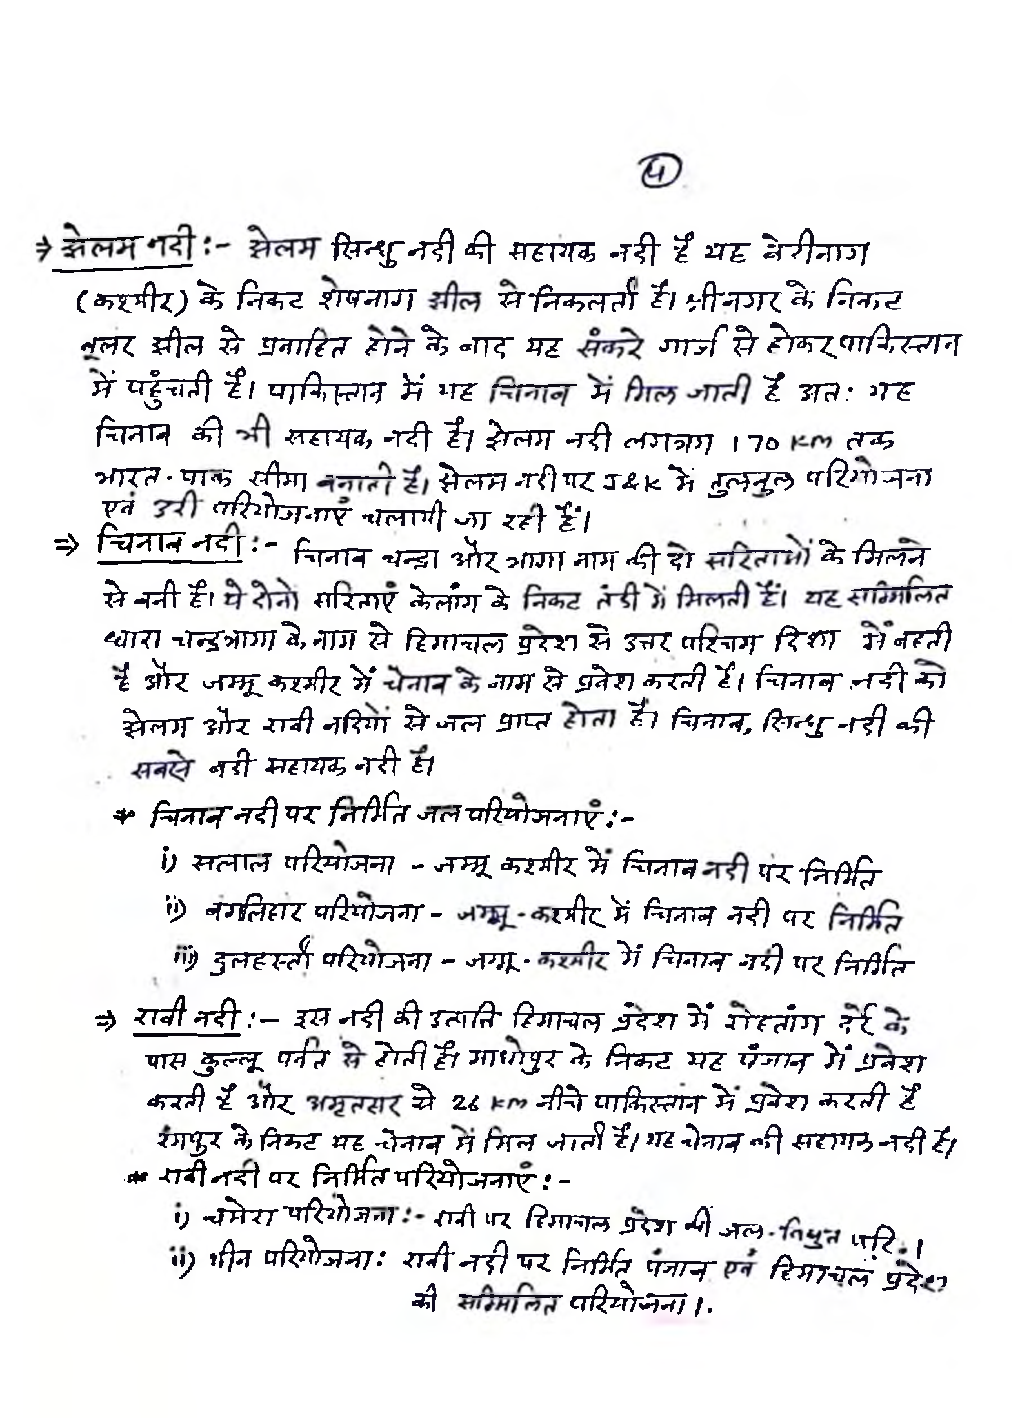 ५
⇒ झेलम नदी :- झेलम सिन्धु नदी की सहायक नदी है यह बेरीनाग
(कश्मीर) के निकट शेषनाग झील से निकलती है। श्रीनगर के निकट
वूलर झील से प्रवाहित होने के बाद यह संकरे गार्ज से होकर पाकिस्तान
में पहुंचती है। पाकिस्तान में यह चिनाब में मिल जाती है अतः यह
चिनाब की भी सहायक नदी है। झेलम नदी लगभग 170 KM तक
भारत-पाक सीमा बनाती है। झेलम नदी पर J&K में तुलबुल परियोजना
एवं उरी परियोजनाएं चलायी जा रही हैं।
⇒ चिनाब नदी :- चिनाब चन्द्रा और भागा नाम की दो सरिताओं के मिलने
से बनी है। ये दोनो सरिताएं केलांग के निकट तंडी में मिलती हैं। यह सम्मिलित
धारा चन्द्रभागा के नाम से हिमाचल प्रदेश से उत्तर पश्चिम दिशा में बहती
है और जम्मू कश्मीर में चेनाब के नाम से प्रवेश करती है। चिनाब नदी को
झेलम और रावी नदियों से जल प्राप्त होता है। चिनाब, सिन्धु नदी की
सबसे बडी सहायक नदी है।
* चिनाब नदी पर निर्मित जल परियोजनाएं :-
i) सलाल परियोजना - जम्मू कश्मीर में चिनाब नदी पर निर्मित
ii) बगलिहार परियोजना - जम्मू-कश्मीर में चिनाब नदी पर निर्मित
iii) दुलहस्ती परियोजना - जम्मू-कश्मीर में चिनाब नदी पर निर्मित
⇒ रावी नदी :- इस नदी की उत्पत्ति हिमाचल प्रदेश में रोहतांग दर्रे के
पास कुल्लू पर्वत से होती है। माधोपुर के निकट यह पंजाब में प्रवेश
करती है और अमृतसर से 26 KM नीचे पाकिस्तान में प्रवेश करती है
रंगपुर के निकट यह चेनाब में मिल जाती है। यह चेनाब की सहायक नदी है।
* रावी नदी पर निर्मित परियोजनाएं :-
i) चमेरा परियोजना :- रावी पर हिमाचल प्रदेश की जल-विधुत परि.।
ii) थीन परियोजना : रावी नदी पर निर्मित पंजाब एवं हिमाचल प्रदेश
की सम्मिलित परियोजना।.